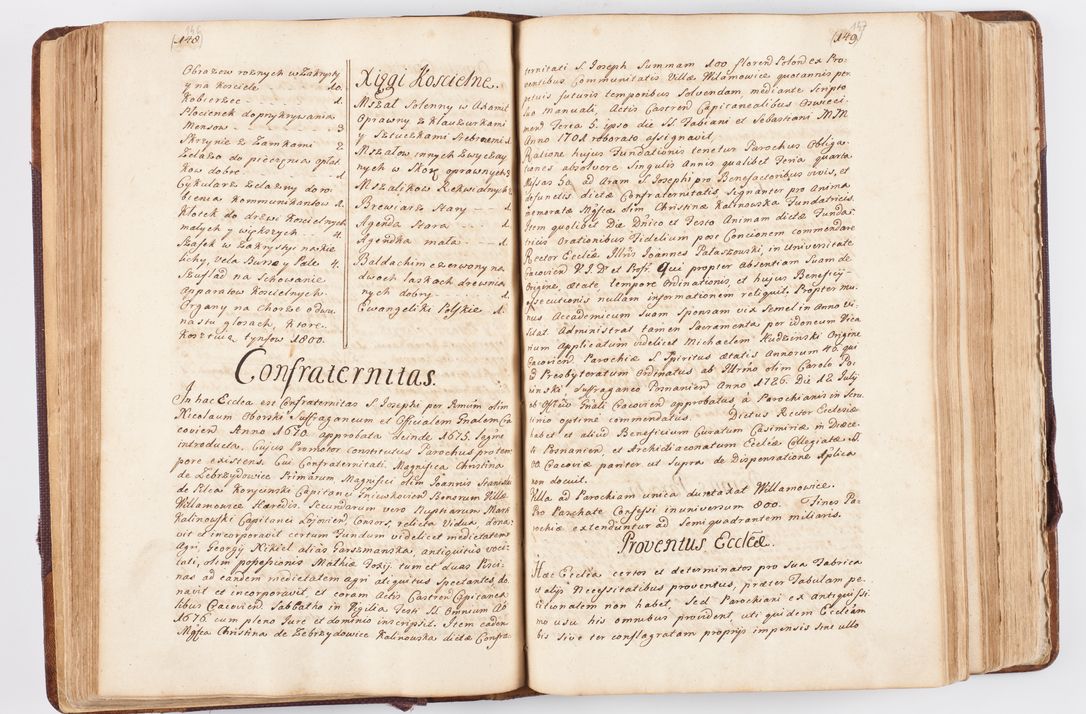 146
(148)
Obrazow roznych w Zakrysty
y na Kosciele 10.
Kobierzec 1.
Płocienek do przykrywania
Mensow 3
Skrzynie z Zamkami 2
Zelazo do pieczenia opłat
kow dobre 1
Cyrkularz żelazny do ro
bienia Kommunikantow 1.
Kłotek do drzwi Koscielnych
małych y większych 4.
Szafek w Zakrystyi na Kie
lichy, Vela Bursæ y Pale 4.
Szuflad na Schowanie
Apparatow Koscielnych
Organy na Chorze o dwu
nastu głosach, ktore
Kosztuią tynfow 1800.
Xięgi Koscielne.
Mszał Solenny w Axamit
Oprawny z Klauzurkami
y Sztuczkami Srebrnemi 1.
Mszałow innych Zwyczay
nych w Skorę oprawnych 2
Mszalikow Rekwialnych 2
Brewiarz Stary 1
Agenda Stara 1.
Agendka mała 1.
Baldachim czerwony na
dwoch laskach drewnia
nych dobry 1.
Ewangeliki Polskie 1.
Confraternitas.
In hac Ecclea est Confraternitas S. Josephi per Rmum olim
Nicolaum Oborski Suffraganeum et Officialem Gnalem Cra
covien Anno 1670 approbata deinde 1675.
introducta. Cujus Promotor constitutus Parochus pro tem
pore existens. Cui Confraternitati Magnifica Christina
de Zebrzydowice Primarum Magnifici olim Joannis Stanislai
de Pilca Koryciński Capitanei Gniewkovien Bonorum Villæ
Willamowice Hæredis, Secundarum vero Nuptiarum Mark
Kalinowski Capitanei Lojovien, Consors, relicta Vidua, dona
vit et incorporavit certum Fundum videlicet medietatem
Agri Georgij Nikiel alias Garszmanska, antiquitus voci
tati, olim possessionis Mathiæ Foxij, tum et duas Pisci
nas ad eandem medietatem agri atiquitus Spectantes do
navit et incorporavit, et coram Actis Castren Capitanea
libus Cracovien. Sabbatho in Vigilia Festi SS Omnium Aō
1676. cum pleno Jure et dominio inscripsit. Item eadem
Mgfica Christina de Zebrzydowice Kalinowska dictæ Confra
147
(149)
ternitati S. Joseph Summam 100 floren Polon ex Pro
ventibus Communitatis Villæ Wilamowice quotannis per
petuis futuris temporibus Solvendam, mediante Scripto
suo Manuali, Actis Castren Capitanealibus Oswieci
men Feria 5. ipso die SS Fabiani et Sebastiani MM
Anno 1701 roborato assignavit.
Ratione hujus Fundationis tenetur Parochus Obliga
tiones absolvere Singulis Annis qualibet Feria quarta
Missas 50 ad Aram S. Josephi pro Benefactoribus vivis, et
defunctis dictæ Confraternitatis, Signanter pro Anima
memoratæ Mgficæ olim Christinæ Kalinowska Fundatricis.
Item quolibet Die Dnico et Festo Animam dictæ Funda
tricis Orationibus Fidelium post Concionem commendare
Rector Ecclæ Illris Joannes Pałaszowski, in Universitate
Cracovien V. J. Dr et Profr. Qui propter absentiam Suam de
Origine, ætate, tempore Ordinationis, et hujus Beneficij
Assecutionis nullam informationem reliquit. Propter mu
nus Academicum Suam Sponsam vix Semel in Anno vi
sitat. Administrat tamen Sacramenta per idoneum Vica
rium Applicatum videlicet Michaelem Kudzinski Origine
Cracovien Parochiæ S. Spiritus ætatis Annorum 46. qui
ad Presbyteratum Ordinatus ab Illrmo olim Carolo Po
ninski Suffraganeo Posnanien Anno 1726. Die 12 Julij
ab Offcio Gnali Cracovien approbatus, a Parochianis in Scru
tinio optime commendatus. Dictus Rector Ecclesiæ
habet et aliud Beneficium Curatum Casimiriæ in Diœce
si Posnanien, et Archidiaconatum Ecclæ Collegiatæ
SS. Cracoviæ pariter ut Supra de Dispensatione Aplica
non docuit.
Villa ad Parochiam unica duntaxat Willamowice.
Pro Paschate Confessi in universum 800. Fines Pa
rochiæ extenduntur ad Semiquadrantem miliaris.
Proventus Eccleæ.
Hæc Ecclea certos et determinatos pro Sua Fabrica
et alijs Necessitatibus proventus, præter Tabulam pe
titionalem non habet, Sed Parochiani ex antiquissi
mo usu his omnibus provident, uti quidem Eccleam
bis Sive ter conflagratam proprijs impensis Sine ullo